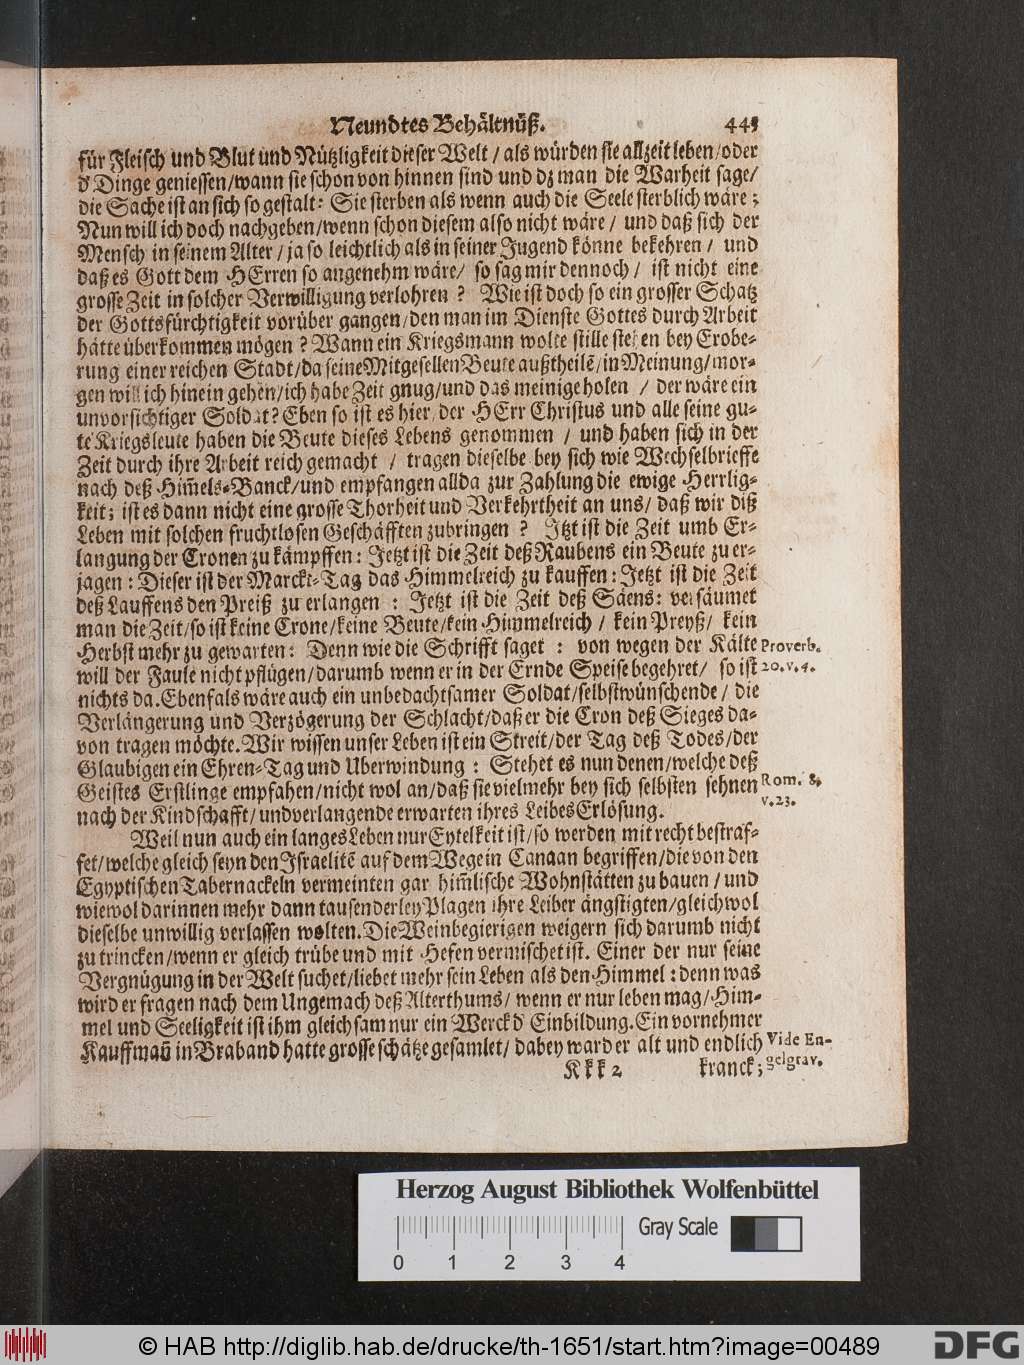 Neundtes Behältnüß. 445
für Fleisch und Blut und Nützligkeit dieser Welt / als würden sie allzeit leben/oder
d' Dinge geniessen/wann sie schon von hinnen sind und dz man die Warheit sage/
die Sache ist an sich so gestalt: Sie sterben als wenn auch die Seele sterblich wäre;
Nun will ich doch nachgeben/wenn schon diesem also nicht wäre / und daß sich der
Mensch in seinem Alter / ja so leichtlich als in seiner Jugend könne bekehren / und
daß es Gott dem HErren so angenehm wäre/ so sag mir dennoch / ist nicht eine
grosse Zeit in solcher Verwilligung verlohren ? Wie ist doch so ein grosser Schatz
der Gottsfürchtigkeit vorüber gangen/den man im Dienste Gottes durch Arbeit
hätte überkommen mögen ? Wann ein Kriegsmann wolte stille stehen bey Erobe-
rung einer reichen Stadt/da seine Mitgesellen Beute außtheilē/in Meinung/mor-
gen will ich hinein gehen/ich habe Zeit gnug/und das meinige holen / der wäre ein
unvorsichtiger Soldat? Eben so ist es hier/ der HErr Christus und alle seine gu-
te Kriegsleute haben die Beute dieses Lebens genommen / und haben sich in der
Zeit durch ihre Arbeit reich gemacht / tragen dieselbe bey sich wie Wechselbrieffe
nach deß Him̄els-Banck/und empfangen allda zur Zahlung die ewige Herrlig-
keit; ist es dann nicht eine grosse Thorheit und Verkehrtheit an uns/ daß wir diß
Leben mit solchen fruchtlosen Geschäfften zubringen ? Itzt ist die Zeit umb Er-
langung der Cronen zu kämpffen: Jetzt ist die Zeit deß Raubens ein Beute zu er-
jagen : Dieser ist der Marckt-Tag das Himmelreich zu kauffen: Jetzt ist die Zeit
deß Lauffens den Preiß zu erlangen : Jetzt ist die Zeit deß Säens: versäumet
man die Zeit/so ist keine Crone/keine Beute/kein Himmelreich / kein Preyß/ kein
Herbst mehr zu gewarten: Denn wie die Schrifft saget : von wegen der Kälte Proverb.
will der Faule nicht pflügen/darumb wenn er in der Ernde Speise begehret/ so ist 20. v. 4.
nichts da. Ebenfals wäre auch ein unbedachtsamer Soldat/selbst wünschende / die
Verlängerung und Verzögerung der Schlacht/daß er die Cron deß Sieges da-
von tragen möchte. Wir wissen unser Leben ist ein Streit/der Tag deß Todes/der
Glaubigen ein Ehren-Tag und Uberwindung : Stehet es nun denen/welche deß
Geistes Erstlinge empfahen/nicht wol an/daß sie vielmehr bey sich selbsten sehnen Rom. 8.
v. 23.
nach der Kindschafft/und verlangende erwarten ihres Leibes Erlösung.
Weil nun auch ein langes Leben nur Eytelkeit ist/so werden mit recht bestraf-
fet/welche gleich seyn den Israelitē auf dem Wege in Canaan begriffen/die von den
Egyptischen Tabernackeln vermeinten gar him̄lische Wohnstätten zu bauen / und
wiewol darinnen mehr dann tausenderley Plagen ihre Leiber ängstigten/gleichwol
dieselbe unwillig verlassen wolten. Die Weinbegierigen weigern sich darumb nicht
zu trincken/wenn er gleich trübe und mit Hefen vermischet ist. Einer der nur seine
Vergnügung in der Welt suchet/liebet mehr sein Leben als den Himmel : denn was
wird er fragen nach dem Ungemach deß Alterthums/ wenn er nur leben mag/Him-
mel und Seeligkeit ist ihm gleichsam nur ein Werck d' Einbildung. Ein vornehmer
Kauffmañ in Braband hatte grosse schätze gesamlet/ dabey ward er alt und endlich Vide En-
gelgrav.
Kkk 2 kranck;
Herzog August Bibliothek Wolfenbüttel
Gray Scale
0 1 2 3 4
© HAB http://diglib.hab.de/drucke/th-1651/start.htm?image=00489
DFG